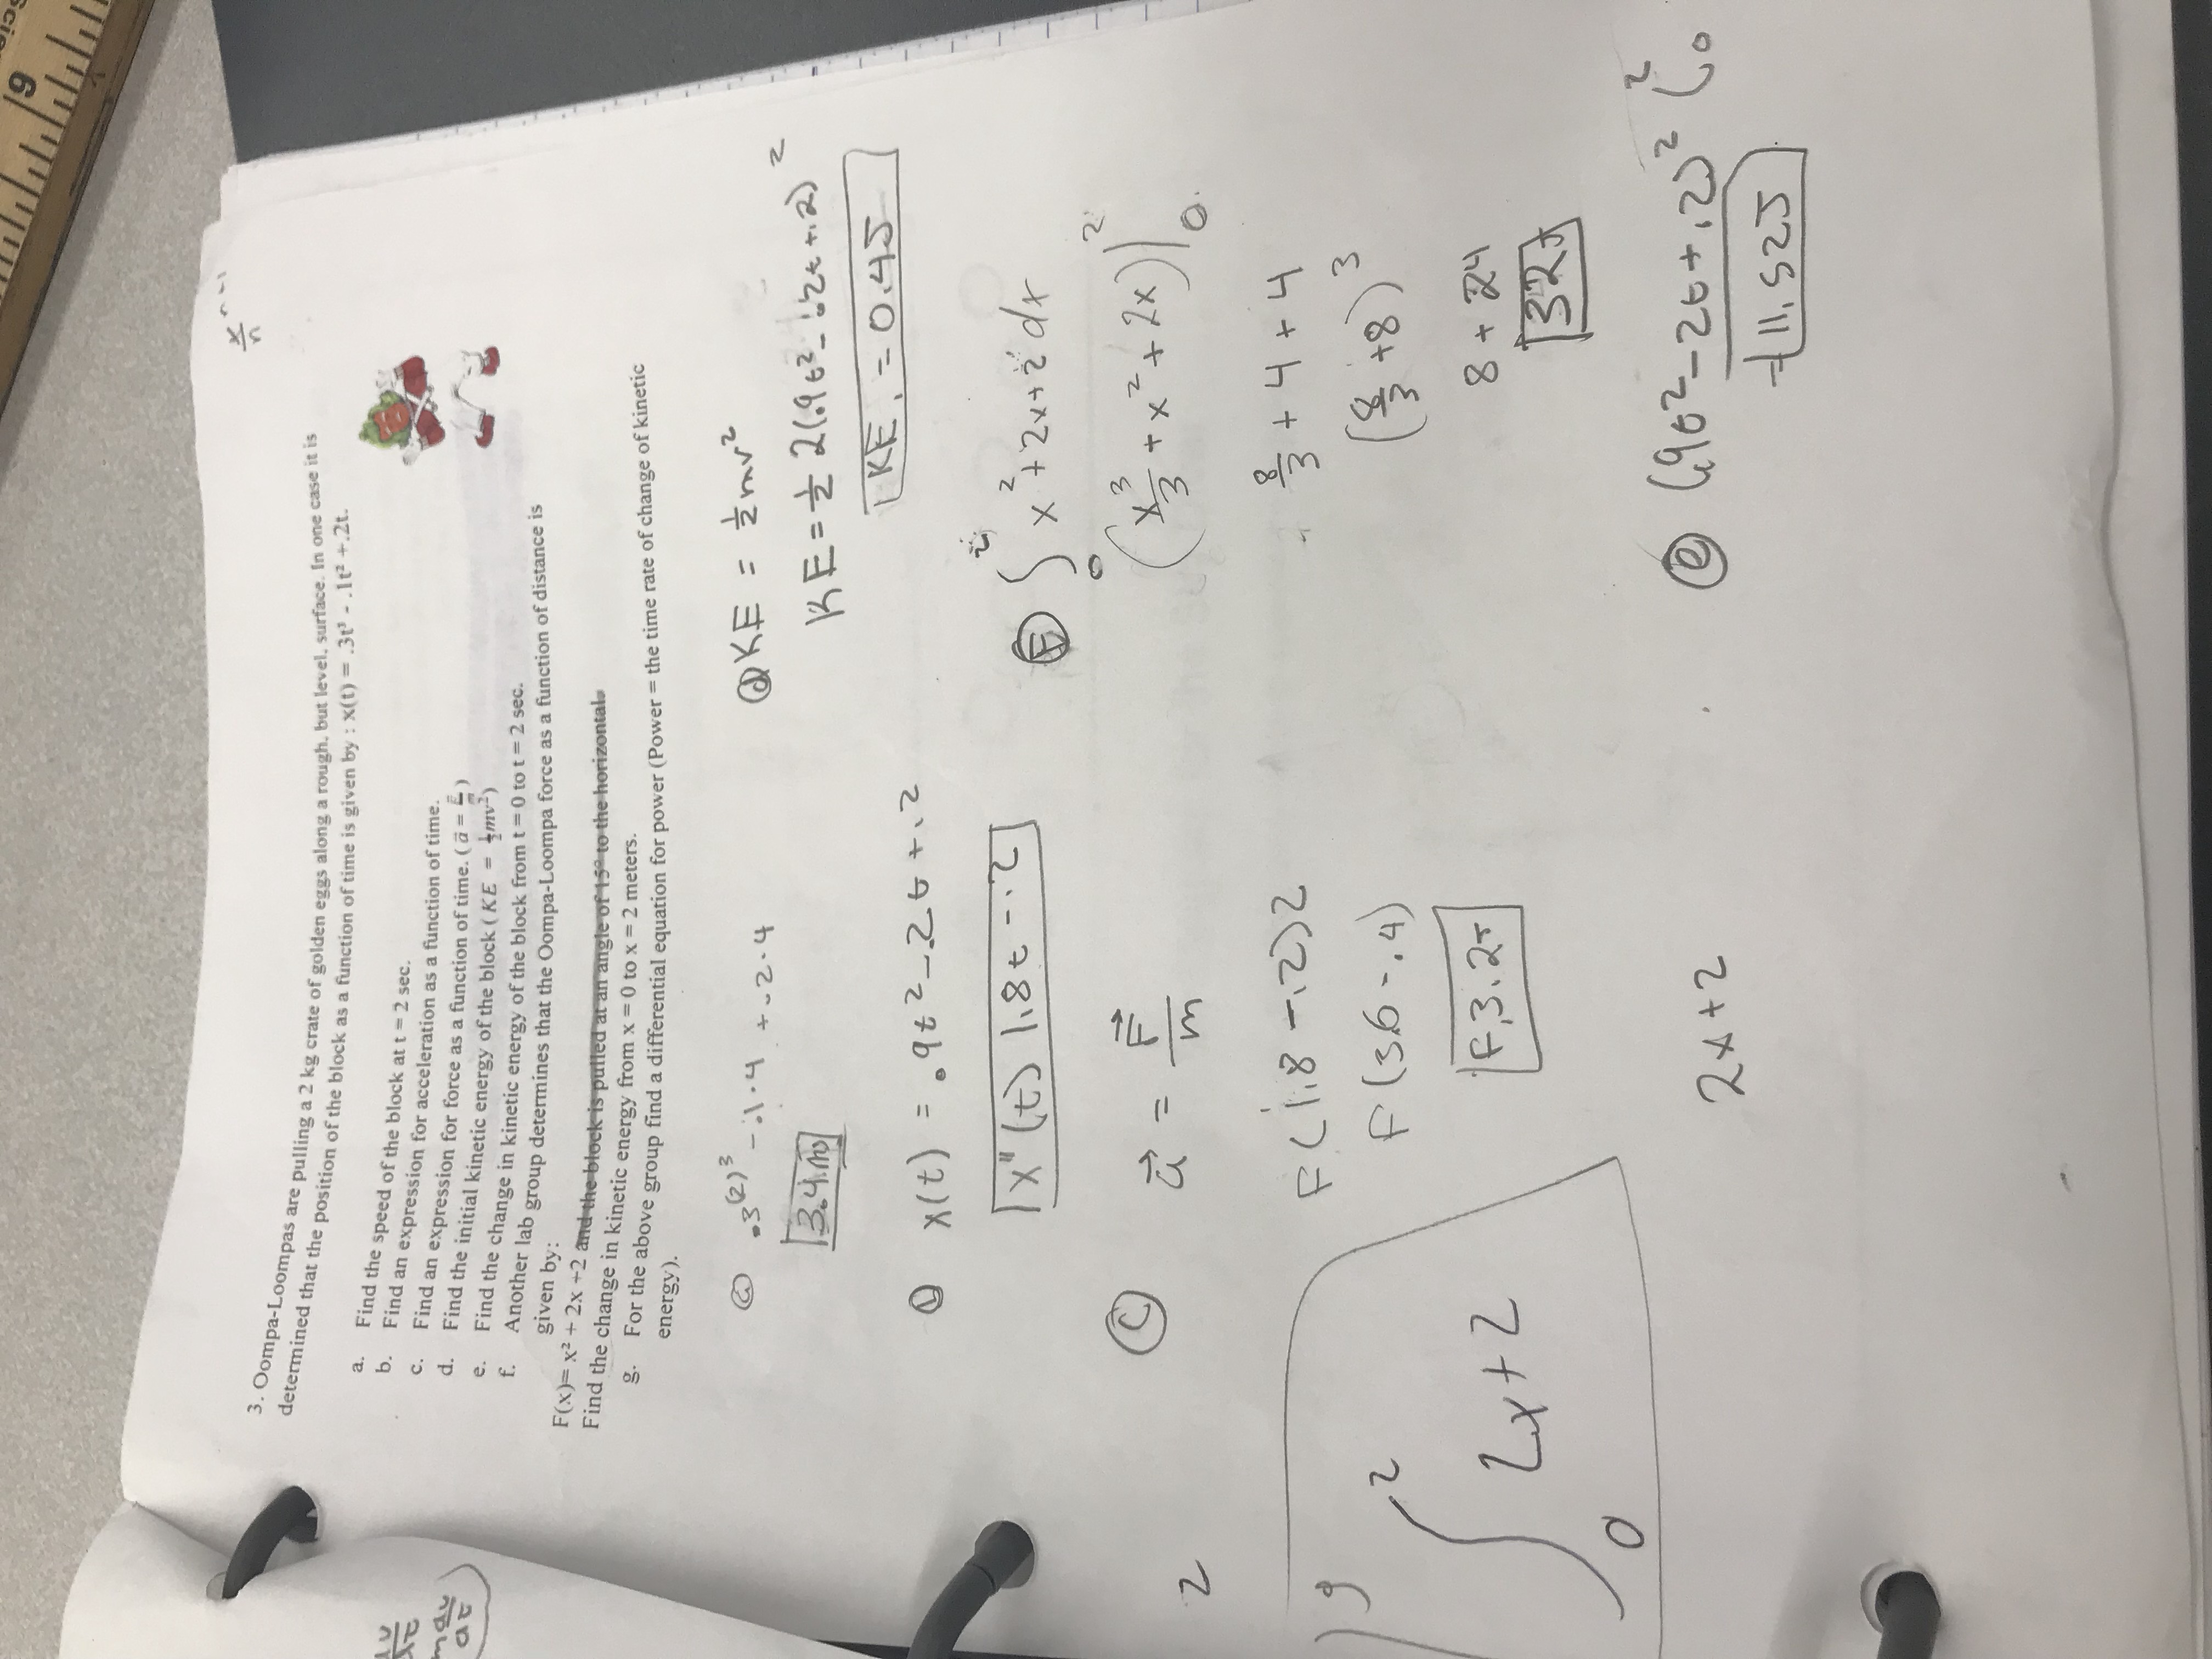 6
x/n n+1
3. Oompa-Loompas are pulling a 2 kg crate of golden eggs along a rough, but level, surface. In one case it is
determined that the position of the block as a function of time is given by : x(t) = .3t³ - .1t² +.2t.
a. Find the speed of the block at t = 2 sec.
b. Find an expression for acceleration as a function of time.
c. Find an expression for force as a function of time. (a⃗ = F⃗/m)
d. Find the initial kinetic energy of the block ( KE = ½mv²)
e. Find the change in kinetic energy of the block from t = 0 to t = 2 sec.
f. Another lab group determines that the Oompa-Loompa force as a function of distance is
given by:
F(x)= x² + 2x +2 and the block is pulled at an angle of 15° to the horizontal.
Find the change in kinetic energy from x = 0 to x = 2 meters.
g. For the above group find a differential equation for power (Power = the time rate of change of kinetic
energy).
dv/dt
m dv/dt
a .3(2)³ - .1·4 + .2·4
3.4 m
b x(t) = .9t² - .2t + .2
x"(t) 1.8t - .2
C a⃗ = F⃗/m
F(1.8 - .2)2
F(3.6 - .4)
F, 3.2
2x+2
2
g
∫₀² 2x+2
d KE = ½mv²
KE = ½ 2(.9t² - .2t + .2)²
KE, = 0.4J
F ∫₀² x² + 2x + 2 dx
(x³/3 + x² + 2x)|₀²
8/3 + 4 + 4
(8/3 + 8)³
8 + 24
32J
e (.9t² - 2t + .2)² (₀²
= 11.52J